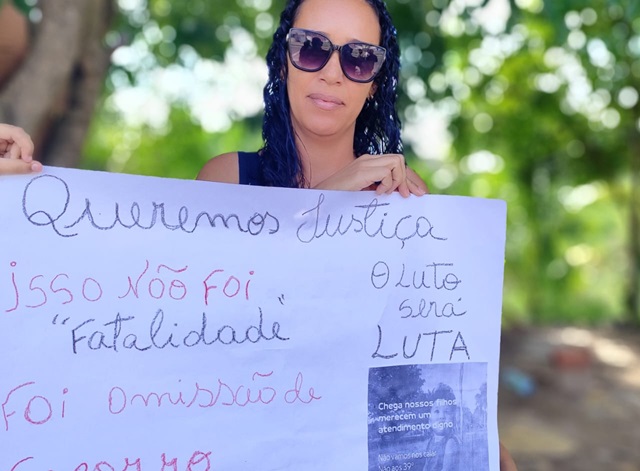 Queremos Justiça
isso Não Foi
"Fatalidade"
Foi omissão de
Socorro
O Luto
será
LUTA
Chega nossos filhos
merecem um
atendimento digno
Não vamos nos calar